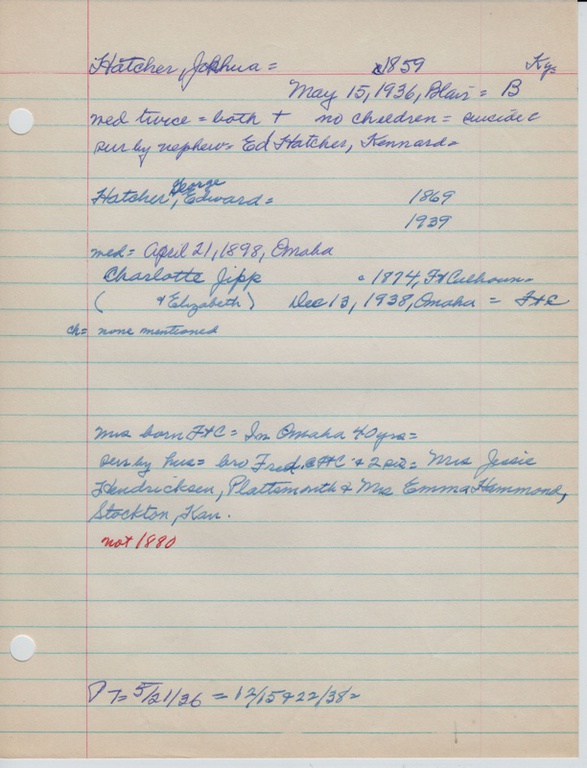 Hatcher, Joshua = c1859 Ky=
May 15, 1936, Blair = B
med twice = both + no children = suicide c
sur by nephew = Ed Hatcher, Kennard =
George
Hatcher, Edward = 1869
1939
med = April 21, 1898, Omaha
Charlotte Jipp c 1874, Ft Calhoun =
( & Elizabeth) Dec 13, 1938, Omaha = Ft C
ch = none mentioned
Mrs born Ft C = In Omaha 40 yrs =
sur by hus = bro Fred, Ft C & 2 sis = Mrs Jessie
Hendricksen, Plattsmouth & Mrs Emma Hammond,
Stockton, Kan.
not 1880
PT = 5/21/36 = 12/15 & 22/38 =